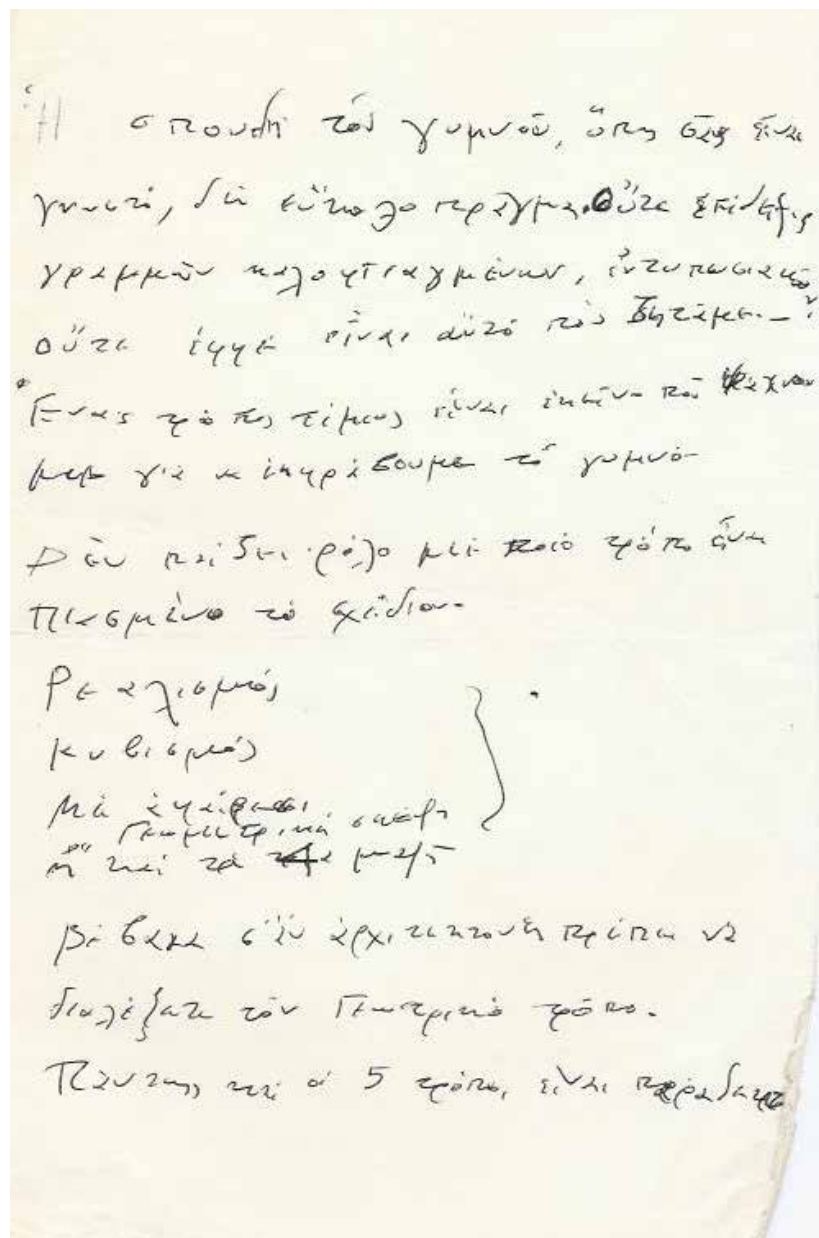 Ἡ σπουδὴ τοῦ γυμνοῦ, ὅπως σᾶς εἶναι
γνωστό, δὲν εὔκολο πρᾶγμα. Οὔτε ἐπίδειξις
γραμμῶν καλοφτιαγμένων, ἐντυπωσιακῶν
οὔτε ἐφφὲ εἶναι αὐτό ποὺ ζητᾶμε.-
Ἕνας τρόπος τίμιος εἶναι ἐκεῖνο ποὺ ψάχνου
με γιὰ νὰ ἐκφράσουμε τὸ γυμνό-
Δὲν παίζει ρόλο μὲ ποιό τρόπο εἶναι
πιασμένο τὸ σχέδιο.-
Ρεαλισμός
Κυβισμός
Μὲ ἀφαίρεση
Γεωμετρική σκέψη
ἢ καί τὰ μαζὺ
Βέβαια σὰν ἀρχιτέκτονες πρέπει νὰ
διαλέξατε τὸν τρόπο.
Πάντως καὶ οἱ 5 τρόποι εἶναι